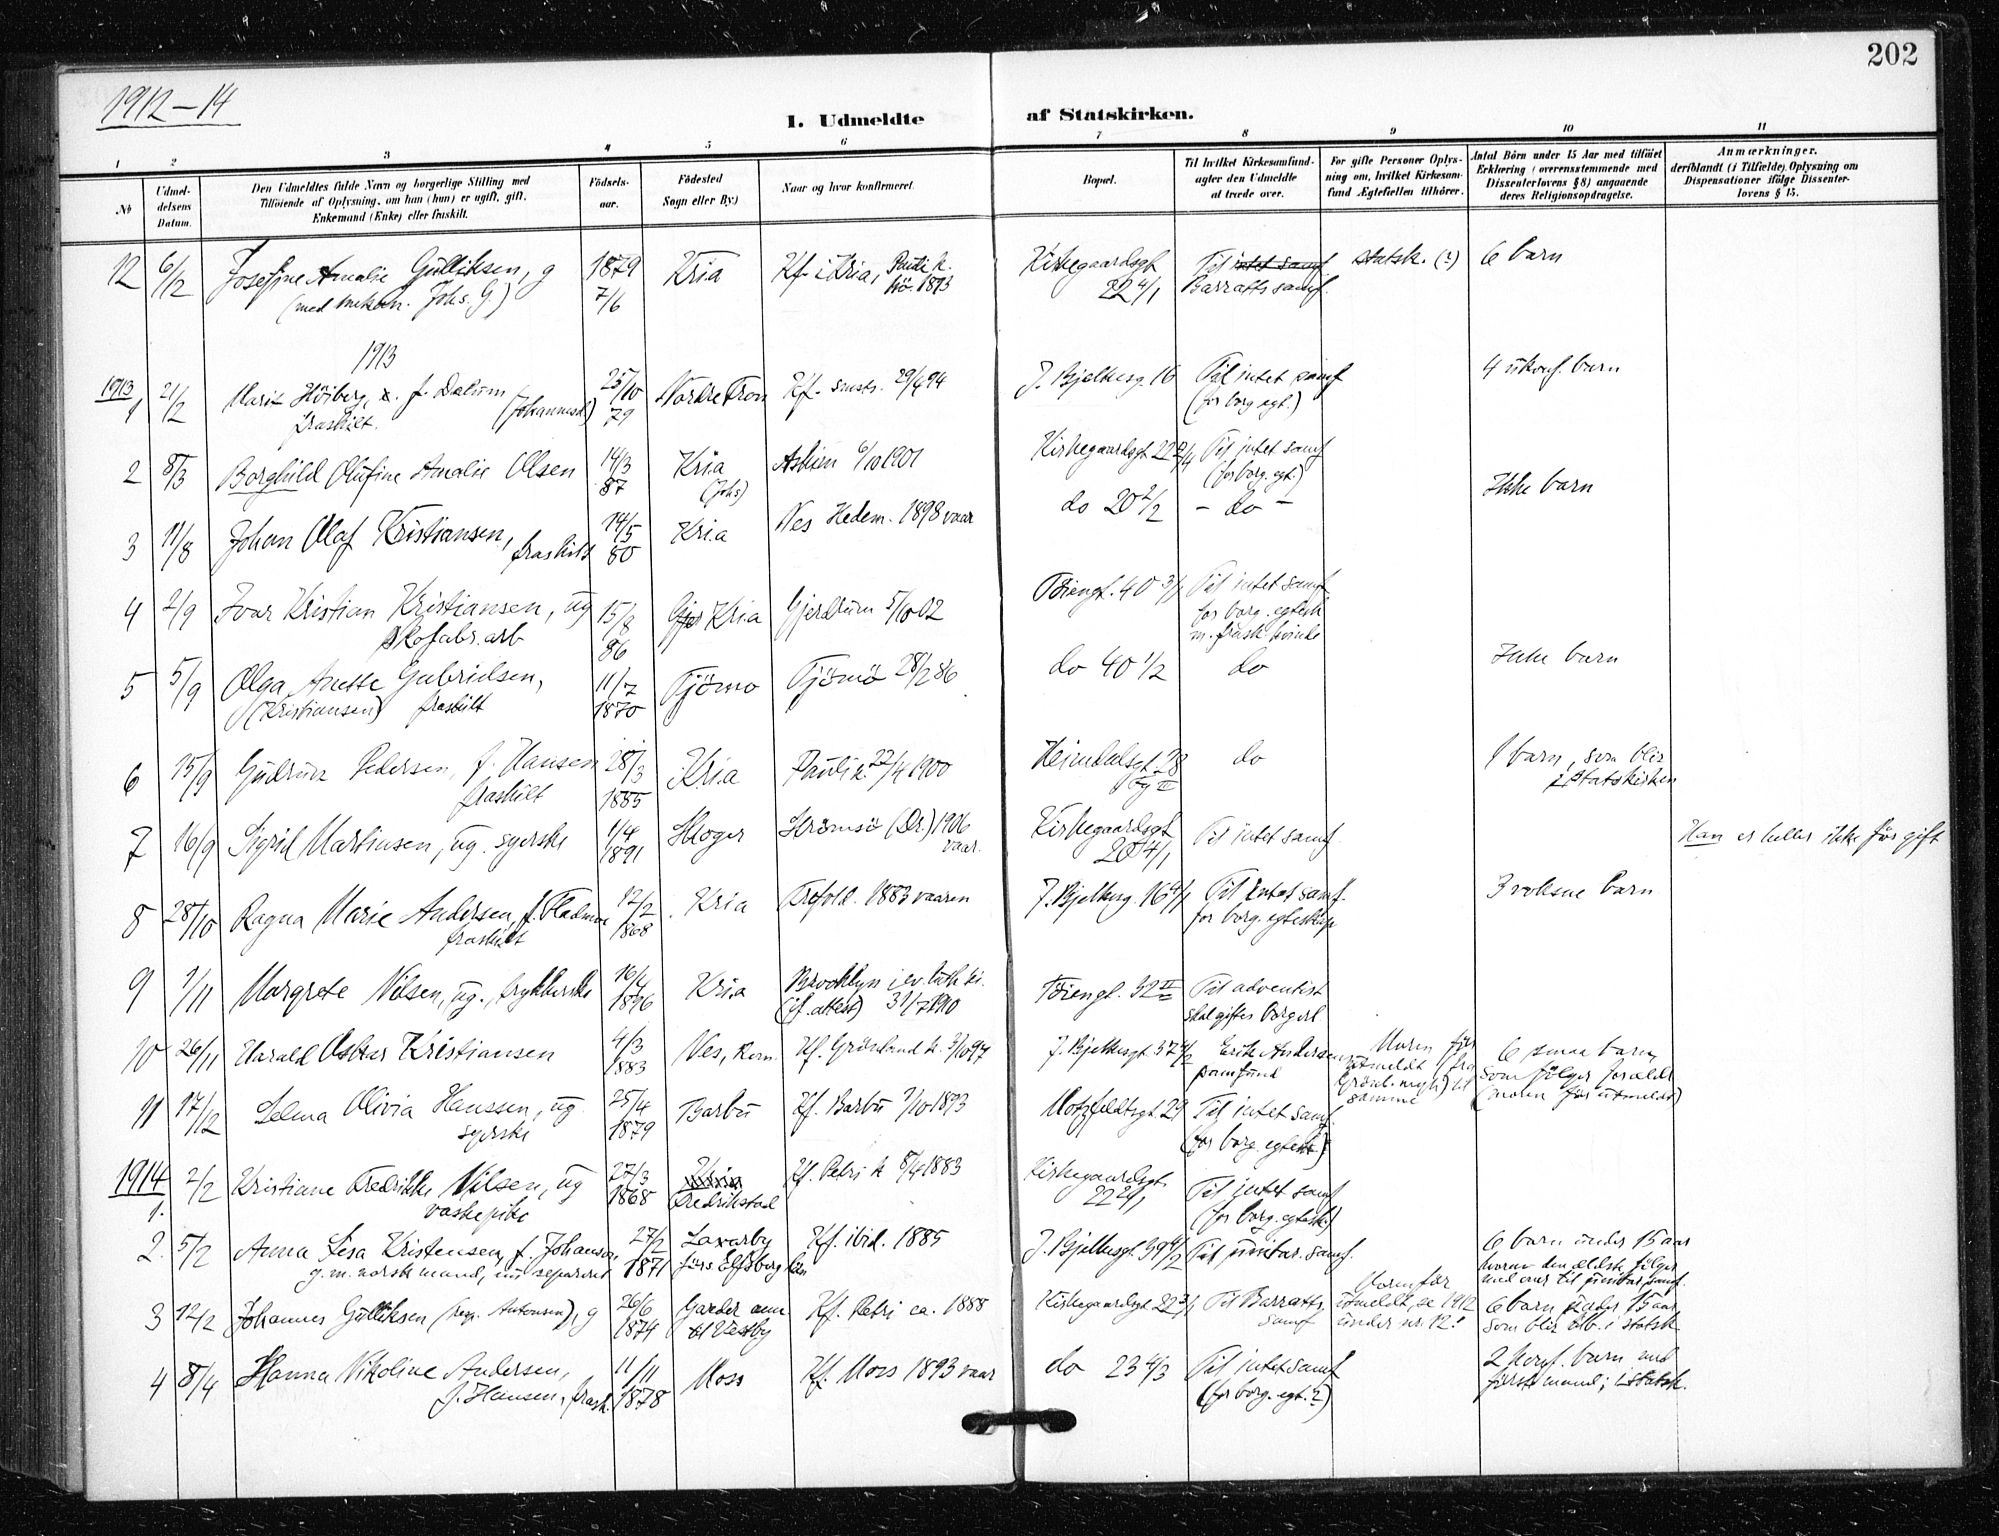 202
1912–14
1. Udmeldte af Statskirken.
1 2 3 4 5 6 7 8 9 10 11
No
Udmel-
delsens
Datum.
Den Udmeldtes fulde Navn og borgerlige Stilling med
Tilföiende af Oplysning, om han (hun) er ugift, gift,
Enkemand (Enke) eller fraskilt.
Födsels-
aar.
Födested
Sogn eller By.)
Naar og hvor konfirmeret.
Bopæl.
Til hvilket Kirkesamfund
agter den Udmeldte
at træde over.
For gifte Personer Oplys-
ning om, hvilket Kirkesam-
fund Ægtefællen tilhörer.
Antal Börn under 15 Aar med tilföiet
Erklæring (overensstemmende med
Dissenterlovens § 8) angaaende
deres Religionsopdragelse.
Anmærkninger,
deriblandt (i Tilfælde) Oplysning om
Dispensationer ifölge Dissenter-
lovens § 15.
12 6/12 Josefine Amalie Gulliksen, g 1879 Kria Kf. i Kria, Pauli k. Kirkegaardsgt Til intet samf statsk. (?) 6 barn
(med Johs. G) 7/6 1893 22 4/1 Barratts samf.
1913
1913 21/2 Marit Höiberg, f. Dalum (Johannesd) 25/10 Nordre Fron Kf. smsts. 29/9 94 J. Bjelkesg 16 Til intet samf 4 ukonf. barn
1 fraskilt. 79 (for borg egt.)
2 8/3 Borghild Olufine Amalie Olsen 14/3 Kria 6/10 1901 Kirkegaardsgt 22 2/4 Til intet samf
87 (Johs) (for borg. egt.)
3 11/8 Johan Olaf Kristiansen, 14/5 Kria Nes Hedem. 1898 vaar do 20 2/2 – do – Ikke barn
fraskilt 80
4 2/9 Ivar Kristian Kristiansen, ug 15/8 Kria Gjerdrum 5/10 02 Töiengt. 40 3/1 Til intet samf
skofabr. arb 86 for borg. egtesk
m. frask kvinde
5 5/9 Olga Anette Gabrielsen, 11/7 Tjömo Tjömö 28/2 86 do 40 1/2 do Ikke barn
(Kristiansen) fraskilt 1870
6 15/9 Gudrun Pedersen, f. Hansen 28/3 Kria Pauli k. 22/4 1900 Heimdalsgt. 28 do 1 barn, som blir
fraskilt 1885 i statskirken
7 16/9 Sigrid Martinsen, ug. syerske 1/4 Skoger Strömsö (Dr.) 1906 Kirkegaardsgt Til intet samf. Han er heller ikke før gift
1891 vaar. 20 4/1
8 28/10 Ragna Marie Andersen, f. Fladmoe 12/2 Kria Trefold. 1883 vaaren J. Bjelkesg. 16 4/1 Til intet samf. 3 voksne barn
fraskilt 1868 for borg. egteskap
9 1/11 Margrete Nilsen, ug., 16/4 Kria Brooklyn i ev. luth ki. Töiengt. 32 II Til adventist
1896 (if. attest) skal giftes borgerl
10 26/11 Harald Oskar Kristiansen 4/3 Ves, Rom. Kf. Grönland k. 3/10 97 J. Bjelkesgt. 37 4/2 Erik Andersens 6 smaa barn,
1883 samfund utmeldt (fra som følger forældr
samme (moren før utmeldt)
11 17/12 Selma Olivia Hanssen, ug 25/4 Barbu Kf. Barbu 1/10 1893 Motzfeldtsgt 29 Til intet samf.
syerske 1879 (for borg. egtesk.)
1914 2/2 Kristiane Fredrikke Nilsen, ug 27/3 Kria Kf. Petri k 8/4 1883 Kirkegaardsgt. Til intet samf
1. vaskepike 1868 Fredrikstad 22 2/1 (for borg. egtesk.)
2. 5/2 Anna Lisa Kristensen, f. Johanson 27/2 Kf. ibid. 1885 J. Bjelkesgt. 39 4/2 Til unitar. samf. 6 barn under 15 aar
g. m. norsk mand, nu separert 1871 Elfsborg län hvorav den ældste følger
med over til unitar. samf.
3 12/2 Johannes Gulliksen (Antonsen), g 26/6 Garder ann. Kf. Petri ca. 1888 Kirkegaardsgt 22 3/1 Til Barratts utmeldt, se 1912 6 barn under 15 aar
1874 til Vestby samf under nr. 12. som blir i statsk
4 8/4 Hanna Nikoline Andersen, 11/11 Moss Kf. Moss 1893 vaar do 23 4/3 Til intet samf 2 konf. barn med
f. Hansen, frask. 1878 (for borg. egt.?) første mand; i statsk.